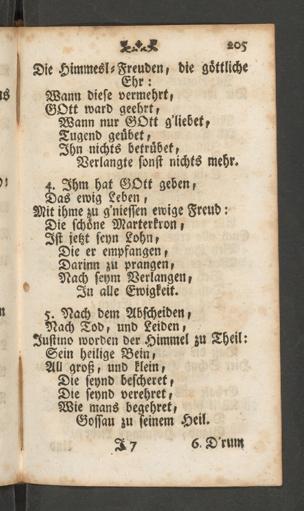 205
Die Himmesl-Freuden, die göttliche
Ehr:
Wann diese vermehrt,
GOtt ward geehrt,
Wann nur GOtt g'liebet,
Tugend geübet,
Ihn nichts betrübet,
Verlangte sonst nichts mehr.
4. Ihm hat GOtt geben,
Das ewig Leben,
Mit ihme zu g'niessen ewige Freud:
Die schöne Marterkron,
Ist jetzt seyn Lohn,
Die er empfangen,
Darinn zu prangen,
Nach seym Verlangen,
In alle Ewigkeit.
5. Nach dem Abscheiden,
Nach Tod, und Leiden,
Justino worden der Himmel zu Theil:
Sein heilige Bein,
All groß, und klein,
Die seynd bescheret,
Die seynd verehret,
Wie mans begehret,
Gossau zu seinem Heil.
J 7 6. D'rum